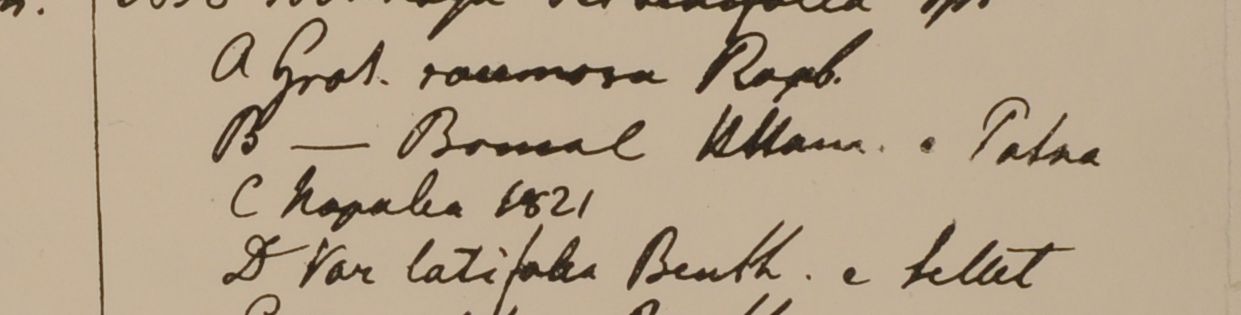 A Grat. racemosa Roxb.
B — Bomal Ham. e Patna
C Napalea 1821
D Var latifolia Benth. e Sellet